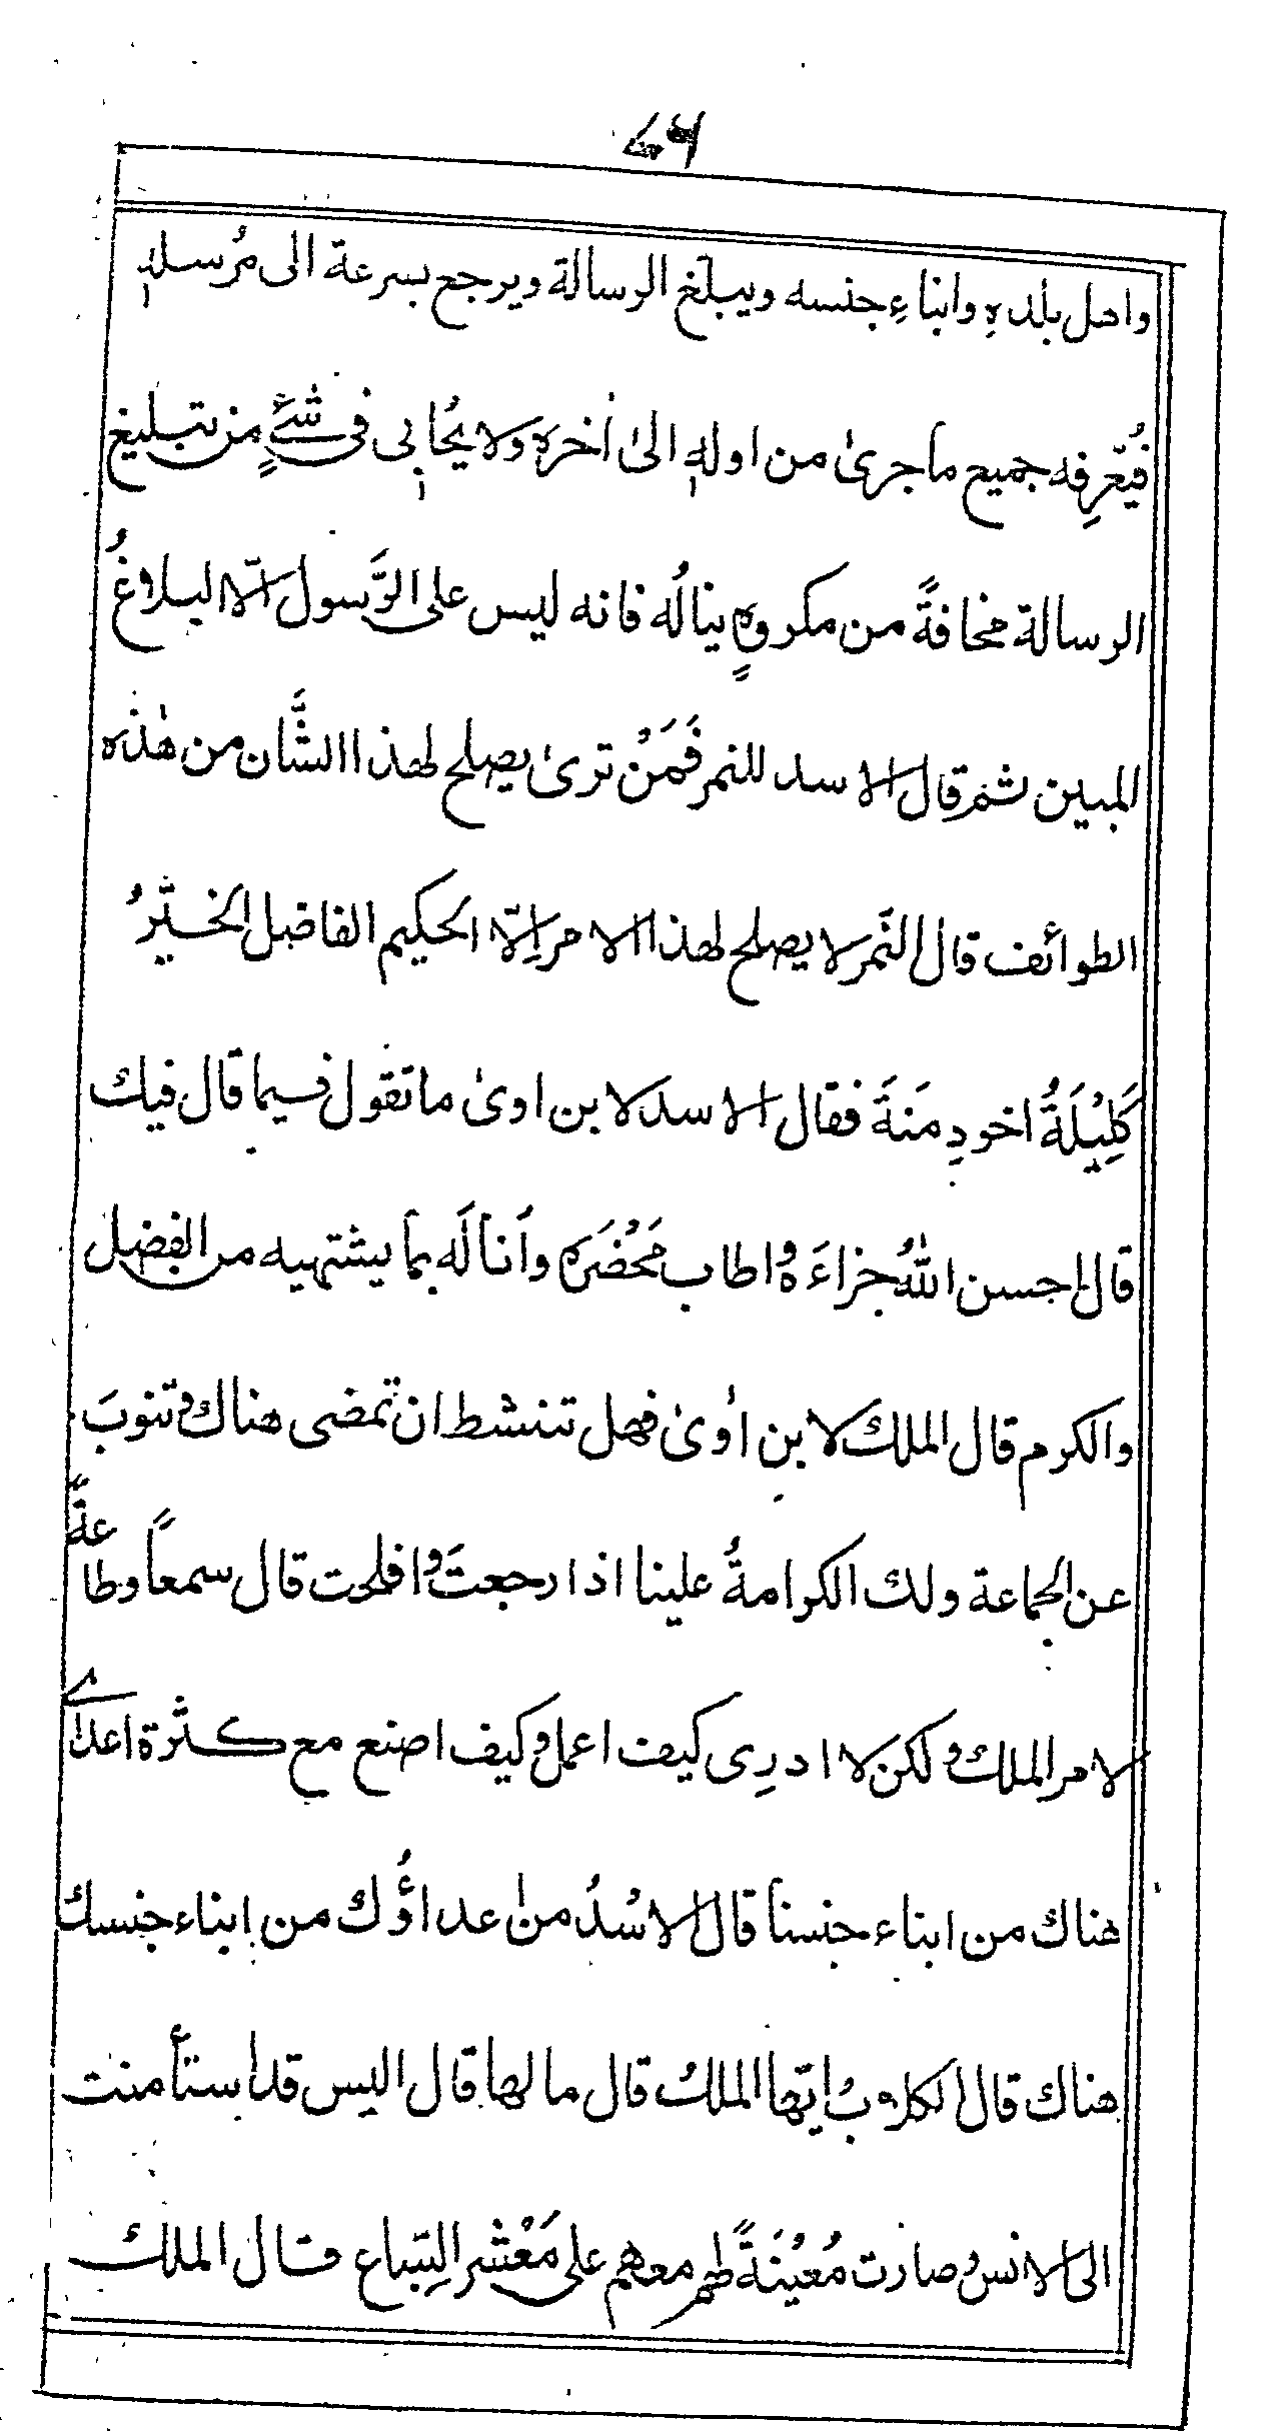 واهل بلدہِ وابناءِ جنسه ويبلّغ الرسالة ويرجع بسرعة الى مُرسلهٖ
فيُعّرِفه جميع ما جرىٰ من اولهٖ الىٰ اٰخرہ ولا يُحابى فى شئٍ من تبليغ
الرسالة مخافةً من مكروہٍ ينالُه فانه ليس على الرَّسول الّا البلاغُ
المبين ثم قال الاسد للنمر فَمَنْ ترىٰ يصلح لهذا الشَّان من هٰذہ
الطوائف قال النَّمر لا يصلح لهذا الامر اِلّا الحكيم الفاضل الخيّرُ
كَلِيْلَةُ اخو دِمنَةَ فقال الاسد لابن اوىٰ ما تقول فيما قال فيك
قال احسن اللّٰهُ جزاءَہُ واطاب مَحْضَرَہ واَنالَه بما يشتهيه من الفضل
والكرم قال الملك لابن اٰوىٰ فهل تنشط ان تمضى هناك وتنوبَ
عن الجماعة ولك الكرامةُ علينا اذا رجعتَ وافلحت قال سمعاً وطاعةً
لامر الملك ولكن لا ادرِى كيف اعمل وكيف اصنع مع كثرة اعدائے
هناك من ابناء جنسنا قال الاسدُ من اعداؤُك من ابناء جنسك
هناك قال الكلابُ ايّها الملكُ قال ما لها قال اليس قد استأمنت
الى الانس وصارت مُعيْنَةً لهم معهم على مَعْشر السِّباع قال الملك